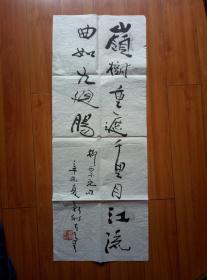 嶺樹重遮千里目江流
曲如九迴腸
柳宗元句